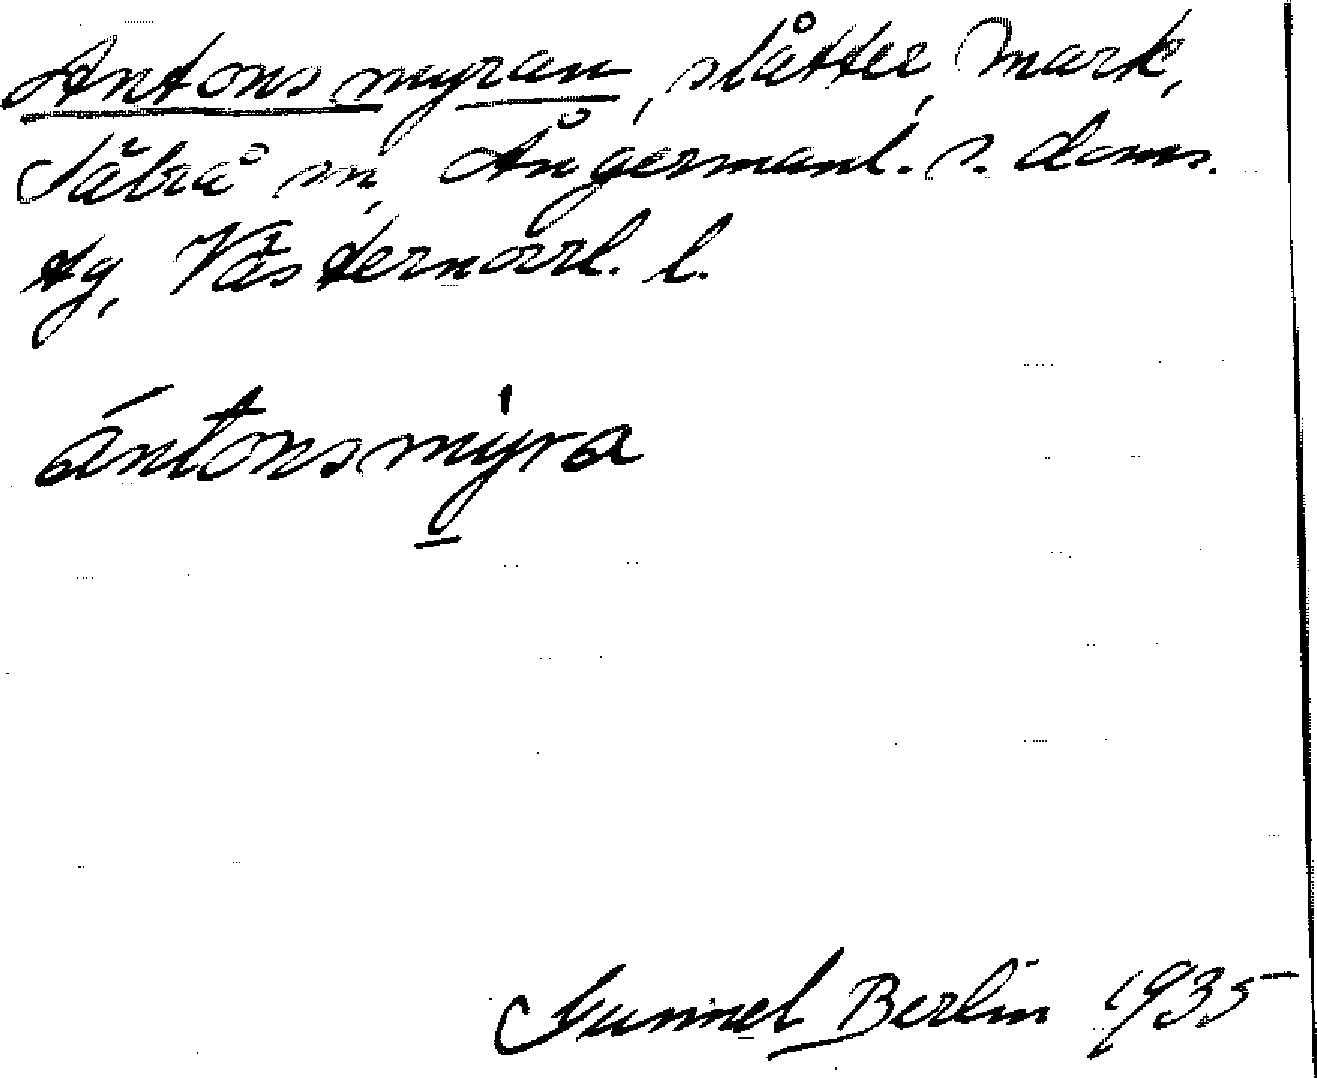 Antonsmyran, slåtter, mark,
Säbrå sn, Ångermanl. s. doms.
tg, Västernorrl. l.
ántonsmy̱ra
Gunnel Berlin 1935